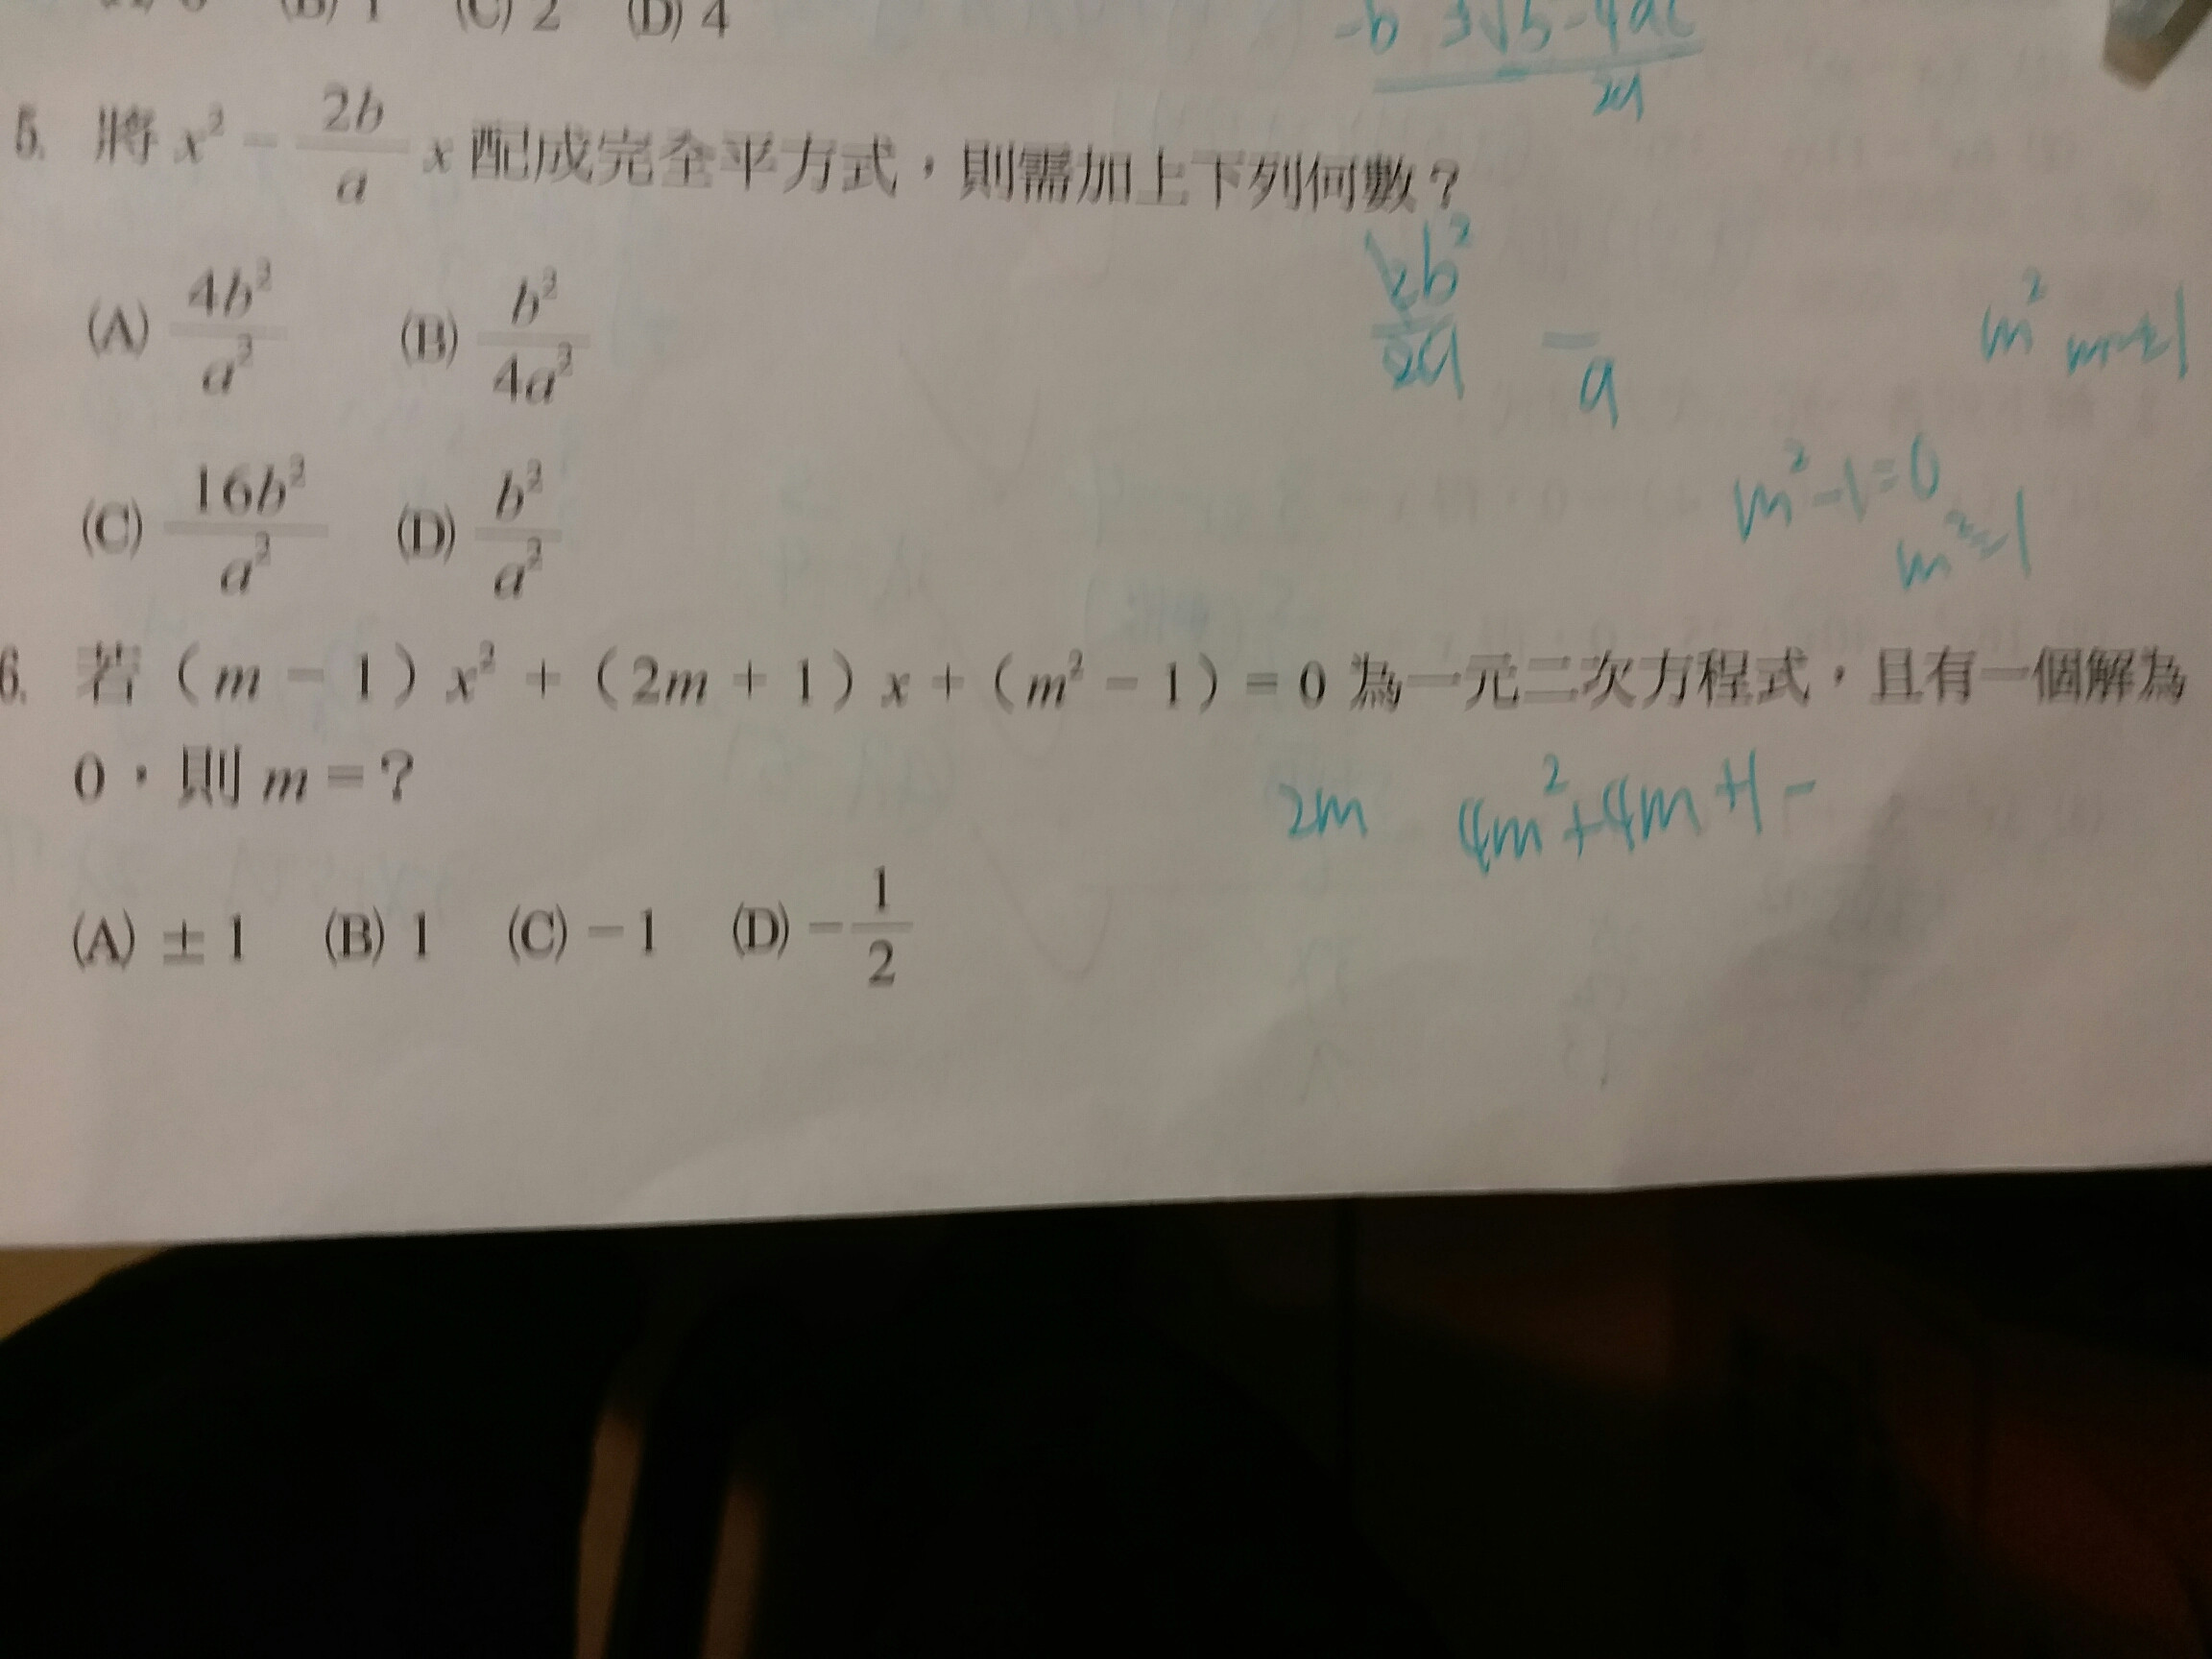 (B) 1 (C) 2 (D) 4
2a
5. 將 x² − 2b/a x 配成完全平方式，則需加上下列何數？
(A) 4b²/a² (B) b²/4a²
(C) 16b²/a² (D) b²/a²
2b²
2a
a
m²
m²-1=0
m²=1
6. 若（m − 1）x² +（2m + 1）x +（m² − 1）= 0 為一元二次方程式，且有一個解為
0，則 m = ？
2m 4m²+4m+1-
(A) ± 1 (B) 1 (C) − 1 (D) − 1/2